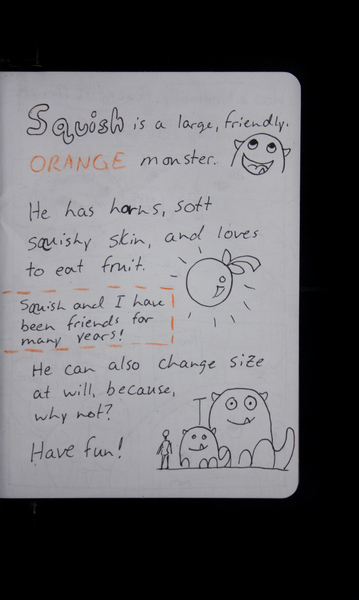 Squish is a large, friendly.
ORANGE monster.
He has horns, soft
squishy skin, and loves
to eat fruit.
Squish and I have
been friends for
many years!
He can also change size
at will, because,
why not?
Have fun!